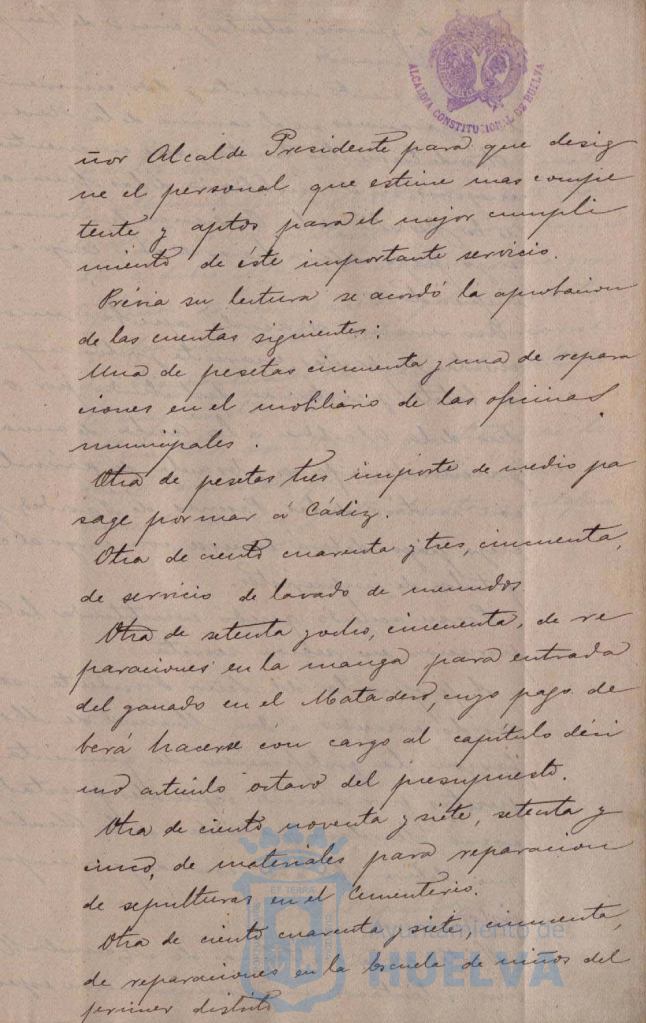 ALCALDIA CONSTITUCIONAL DE HUELVA
ñor Alcalde Presidente para que desig
ne el personal que estime mas compe
tente y aptos para el mejor cumpli
miento de éste importante servicio.
Prévia su lectura se acordó la aprobacion
de las cuentas siguientes:
Una de pesetas cincuenta y una de repara
ciones en el mobiliario de las oficinas
municipales.
Otra de pesetas tres importe de medio pa
sage por mar á Cádiz.
Otra de ciento cuarenta y tres, cincuenta,
de servicio de lavado de menudos
Otra de setenta y ocho, cincuenta, de re
paraciones en la manga para entrada
del ganado en el Matadero, cuyo pago de
berá hacerse con cargo al capítulo déci
mo artículo octavo del presupuesto.
Otra de ciento noventa y siete, setenta y
cinco, de materiales para reparacion
de sepulturas en el Cementerio.
Otra de ciento cuarenta y siete, cincuenta,
de reparaciones en la Escuela de niños del
primer distrito
Ayuntamiento de
HUELVA